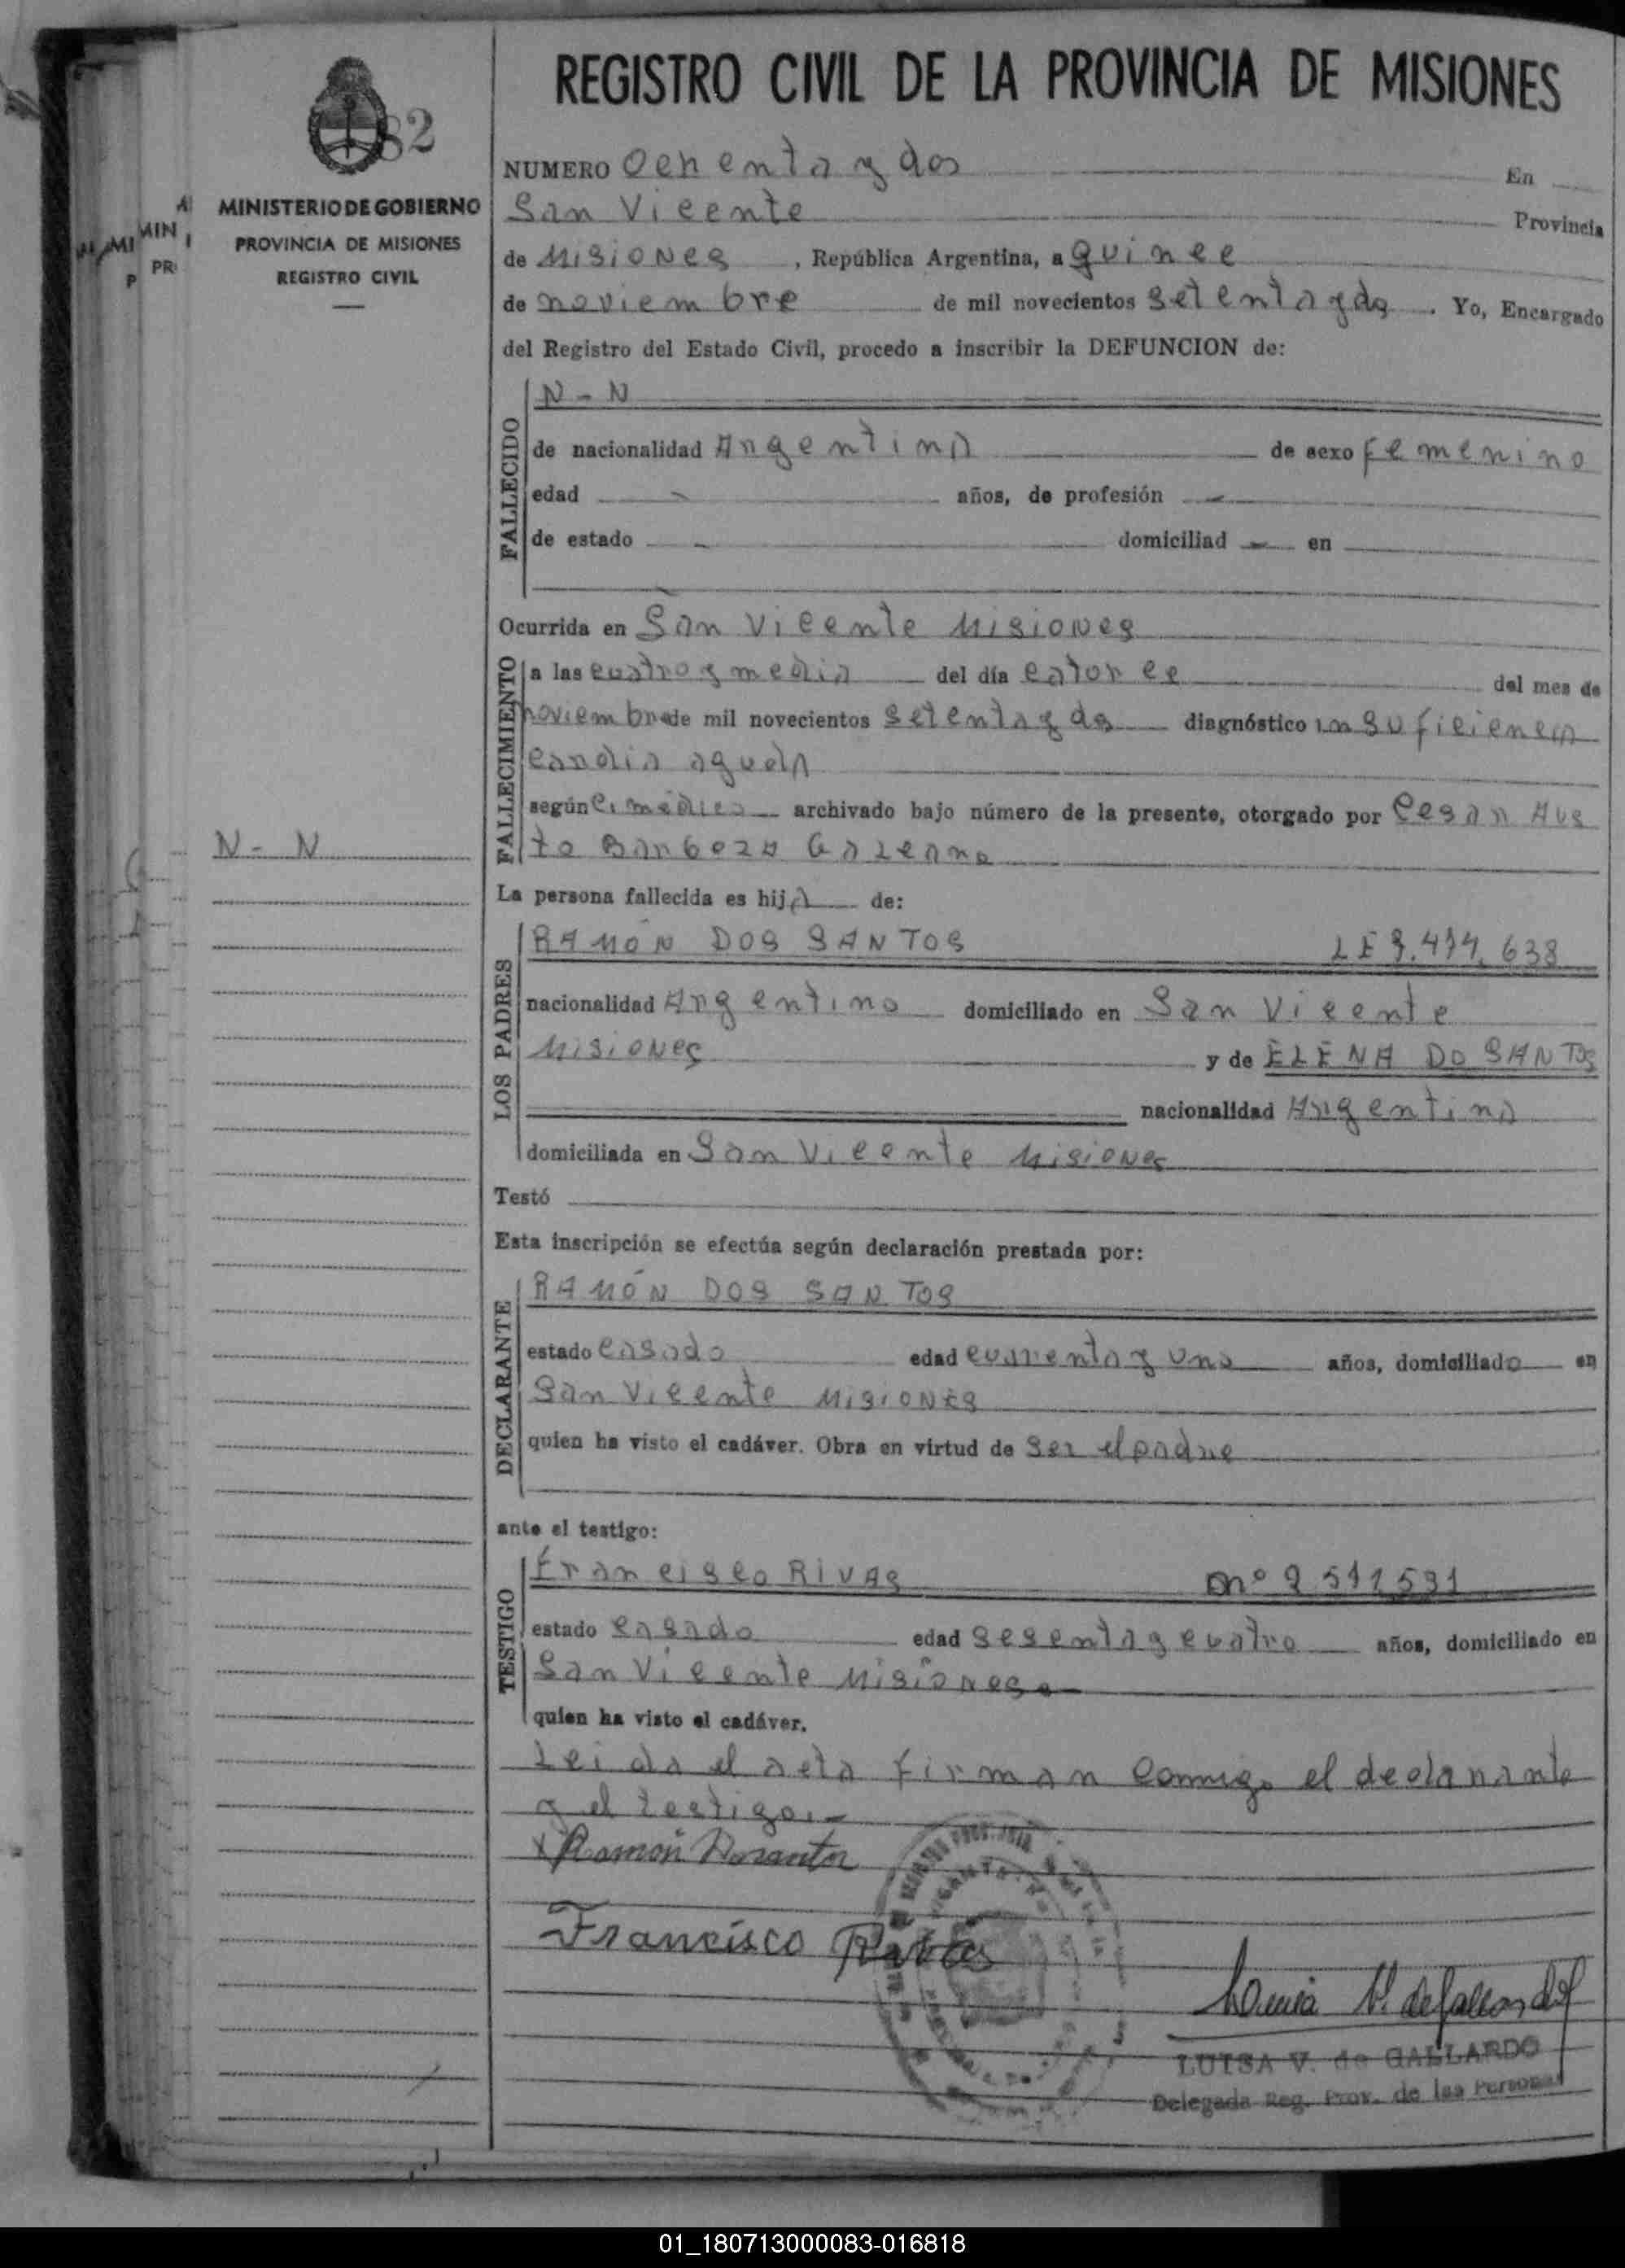 REGISTRO CIVIL DE LA PROVINCIA DE MISIONES
82
MINISTERIO DE GOBIERNO
PROVINCIA DE MISIONES
REGISTRO CIVIL
NUMERO Ochenta y dos En
San Vicente Provincia
de Misiones, República Argentina, a quince
de noviembre de mil novecientos setenta y dos. Yo, Encargado
del Registro del Estado Civil, procedo a inscribir la DEFUNCION de:
FALLECIDO
N-N
de nacionalidad Argentina de sexo femenino
edad - años, de profesión -
de estado - domiciliad - en
Ocurrida en San Vicente Misiones
FALLECIMIENTO
a las cuatro y media del día catorce del mes de
noviembre de mil novecientos setenta y dos diagnóstico insuficiencia
cardia aguda
según C. médico archivado bajo número de la presente, otorgado por Cesar Aus
to Barboza
N-N
La persona fallecida es hija de:
LOS PADRES
RAMÓN DOS SANTOS LE 638
nacionalidad Argentino domiciliado en San Vicente
Misiones y de ELENA DO SANTOS
nacionalidad Argentina
domiciliada en San Vicente Misiones
Testó
Esta inscripción se efectúa según declaración prestada por:
DECLARANTE
RAMÓN DOS SANTOS
estado casado edad cuarenta y uno años, domiciliado en
San Vicente MISIONES
quien ha visto el cadáver. Obra en virtud de ser el padre
ante el testigo:
TESTIGO
Francisco RIVAS
estado casado edad sesenta y cuatro años, domiciliado en
San Vicente Misiones
quien ha visto el cadáver.
Leida el acta firman conmigo el declarante
y el testigo.-
x Ramón Dosantos
Francisco Rivas
LUISA V. de GALLARDO
Delegada Reg. Prov. de las Personas
01_180713000083-016818